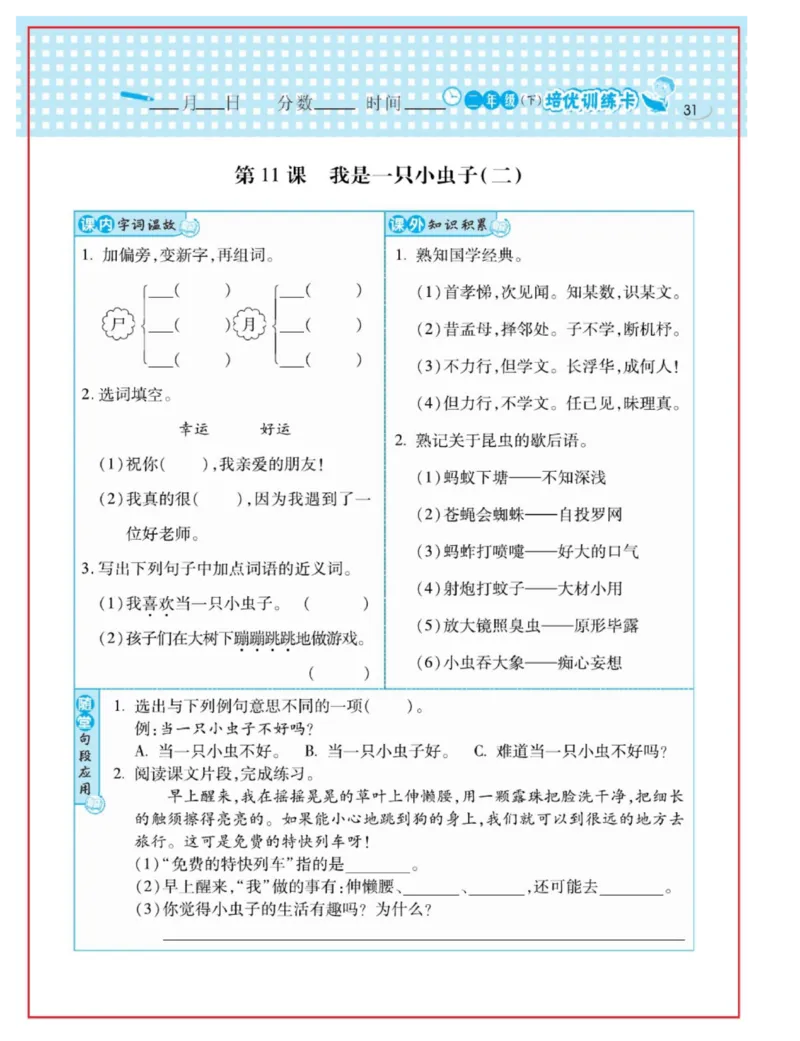 ___月___日 分数_____ 时间_____ 二年级(下)培优训练卡 31
第11课 我是一只小虫子(二)
课内字词温故
1. 加偏旁,变新字,再组词。
___( ) ___( )
尸 ___( ) 月 ___( )
___( ) ___( )
2. 选词填空。
幸运 好运
(1)祝你( ),我亲爱的朋友!
(2)我真的很( ),因为我遇到了一
位好老师。
3. 写出下列句子中加点词语的近义词。
(1)我喜欢当一只小虫子。 ( )
(2)孩子们在大树下蹦蹦跳跳地做游戏。
( )
课外知识积累
1. 熟知国学经典。
(1)首孝悌,次见闻。知某数,识某文。
(2)昔孟母,择邻处。子不学,断机杼。
(3)不力行,但学文。长浮华,成何人!
(4)但力行,不学文。任己见,昧理真。
2. 熟记关于昆虫的歇后语。
(1)蚂蚁下塘——不知深浅
(2)苍蝇会蜘蛛——自投罗网
(3)蚂蚱打喷嚏——好大的口气
(4)射炮打蚊子——大材小用
(5)放大镜照臭虫——原形毕露
(6)小虫吞大象——痴心妄想
随堂句段应用
1. 选出与下列例句意思不同的一项( )。
例:当一只小虫子不好吗?
A. 当一只小虫不好。 B. 当一只小虫子好。 C. 难道当一只小虫不好吗?
2. 阅读课文片段,完成练习。
早上醒来,我在摇摇晃晃的草叶上伸懒腰,用一颗露珠把脸洗干净,把细长
的触须擦得亮亮的。如果能小心地跳到狗的身上,我们就可以到很远的地方去
旅行。这可是免费的特快列车呀!
(1)“免费的特快列车”指的是________。
(2)早上醒来,“我”做的事有:伸懒腰、_______、_______,还可能去________。
(3)你觉得小虫子的生活有趣吗?为什么?